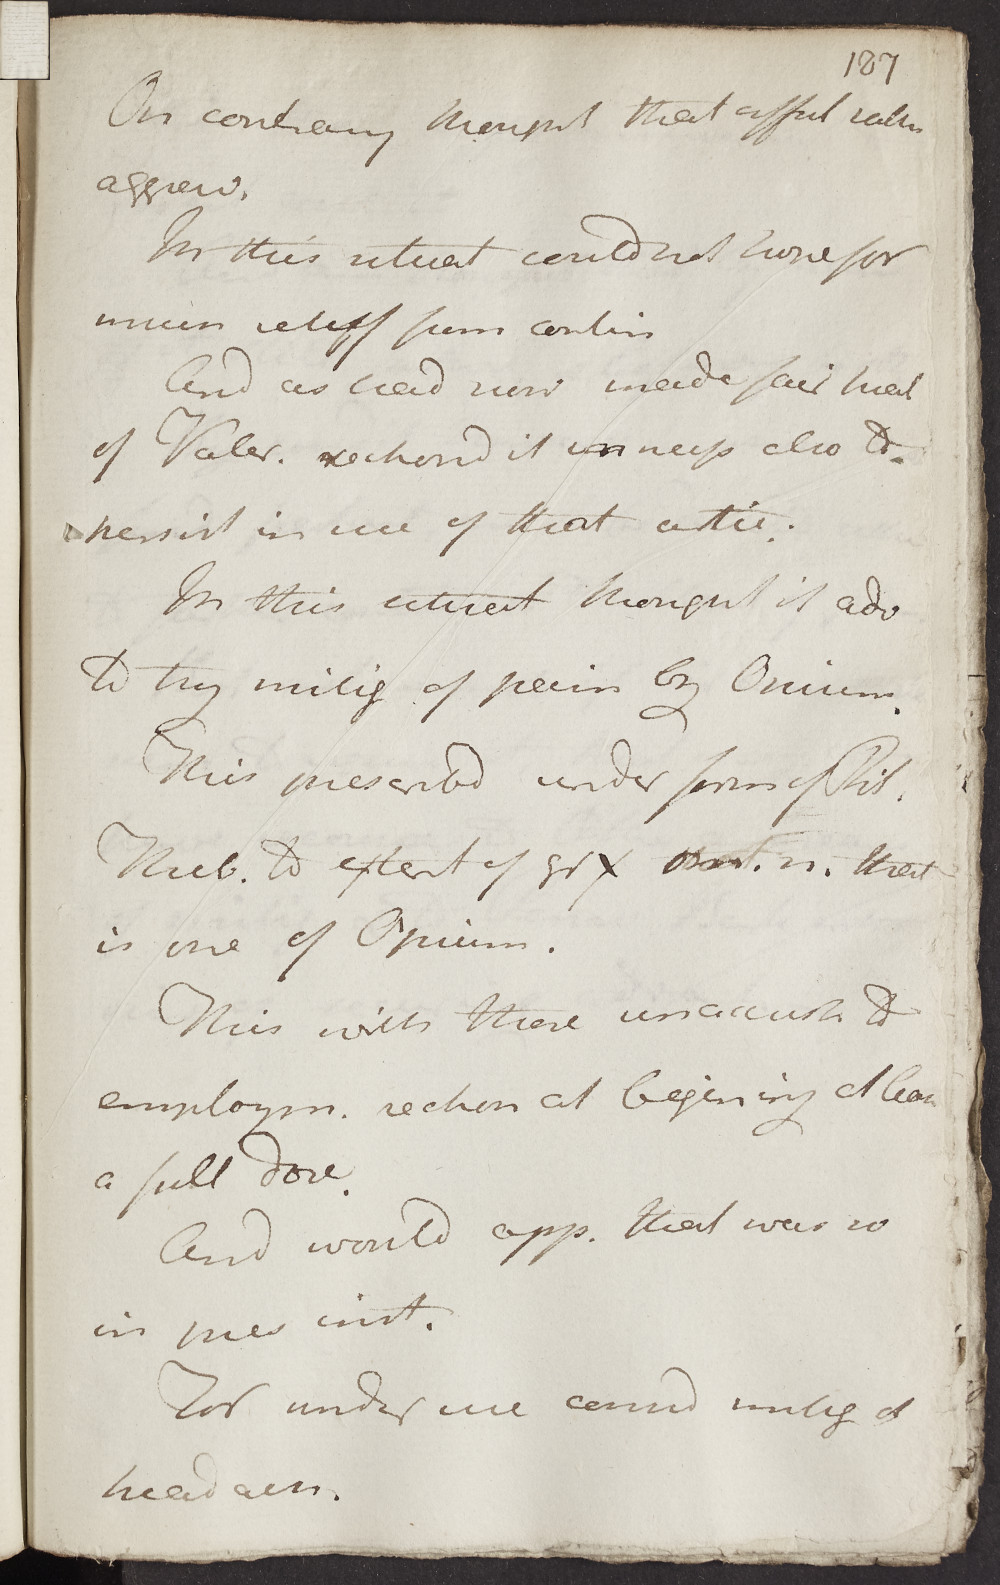 187
On contrary thought that affect rather
aggrav.
In this situat could not hope for
much relieff from contin
And as had now made fair trial
of Valer. rechond it unnecess also to
persist in use of that artic.
In this situat thought it adv
to try mitig of pain by Opium.
This prescribd under form of Pil.
Theb. to extent of gr x omn. n. that
is one of Opium.
This with those unaccust to
employm. rechon at begining at least
a full dose.
And would app. that was so
in pres inst.
For under use consid mitig of
head ach.